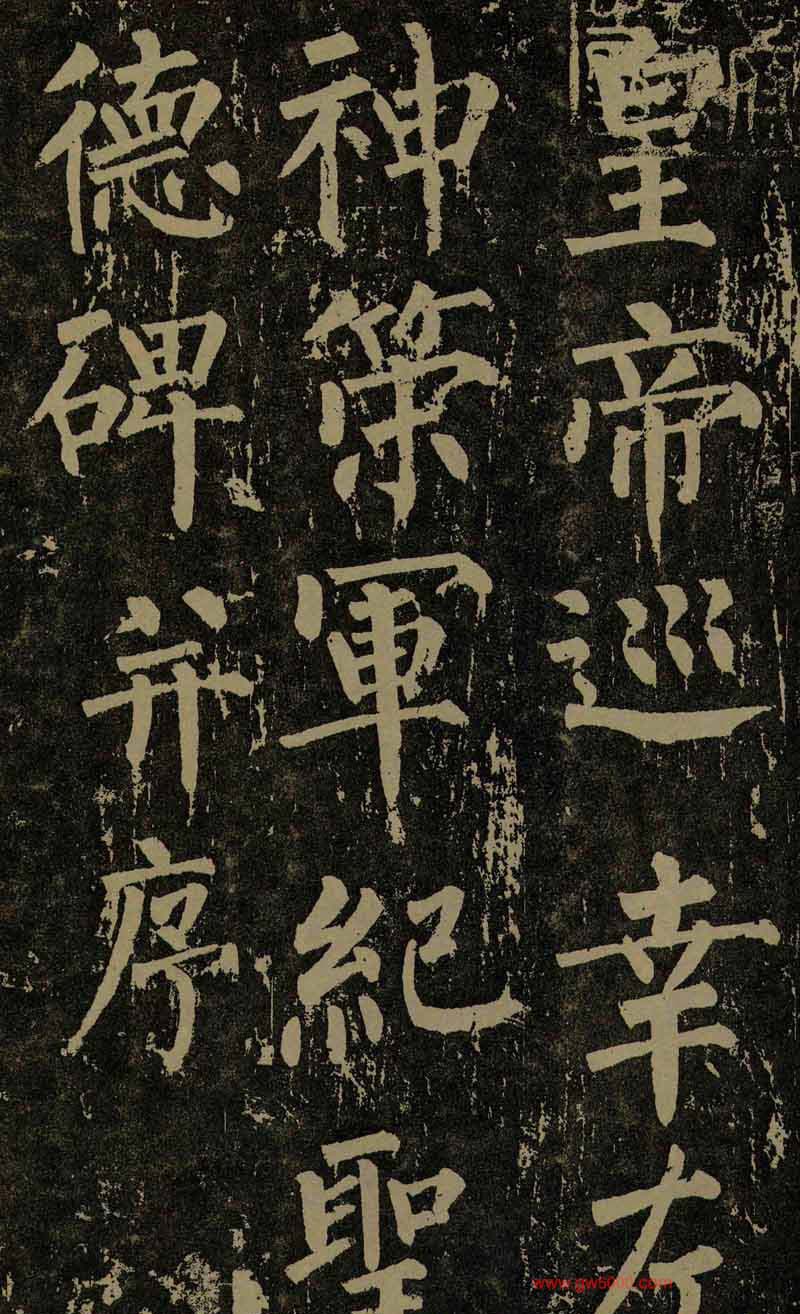 皇帝巡幸左
神策軍紀聖
德碑并序
www.gw5000.com